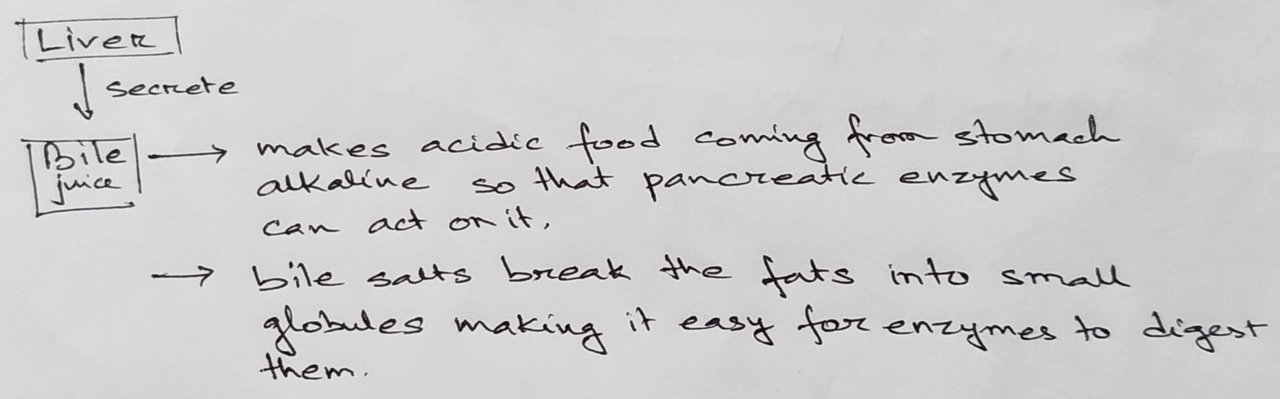 Liver
secrete
Bile
juice
makes acidic food coming from stomach
alkaline so that pancreatic enzymes
can act on it.
bile salts break the fats into small
globules making it easy for enzymes to digest
them.